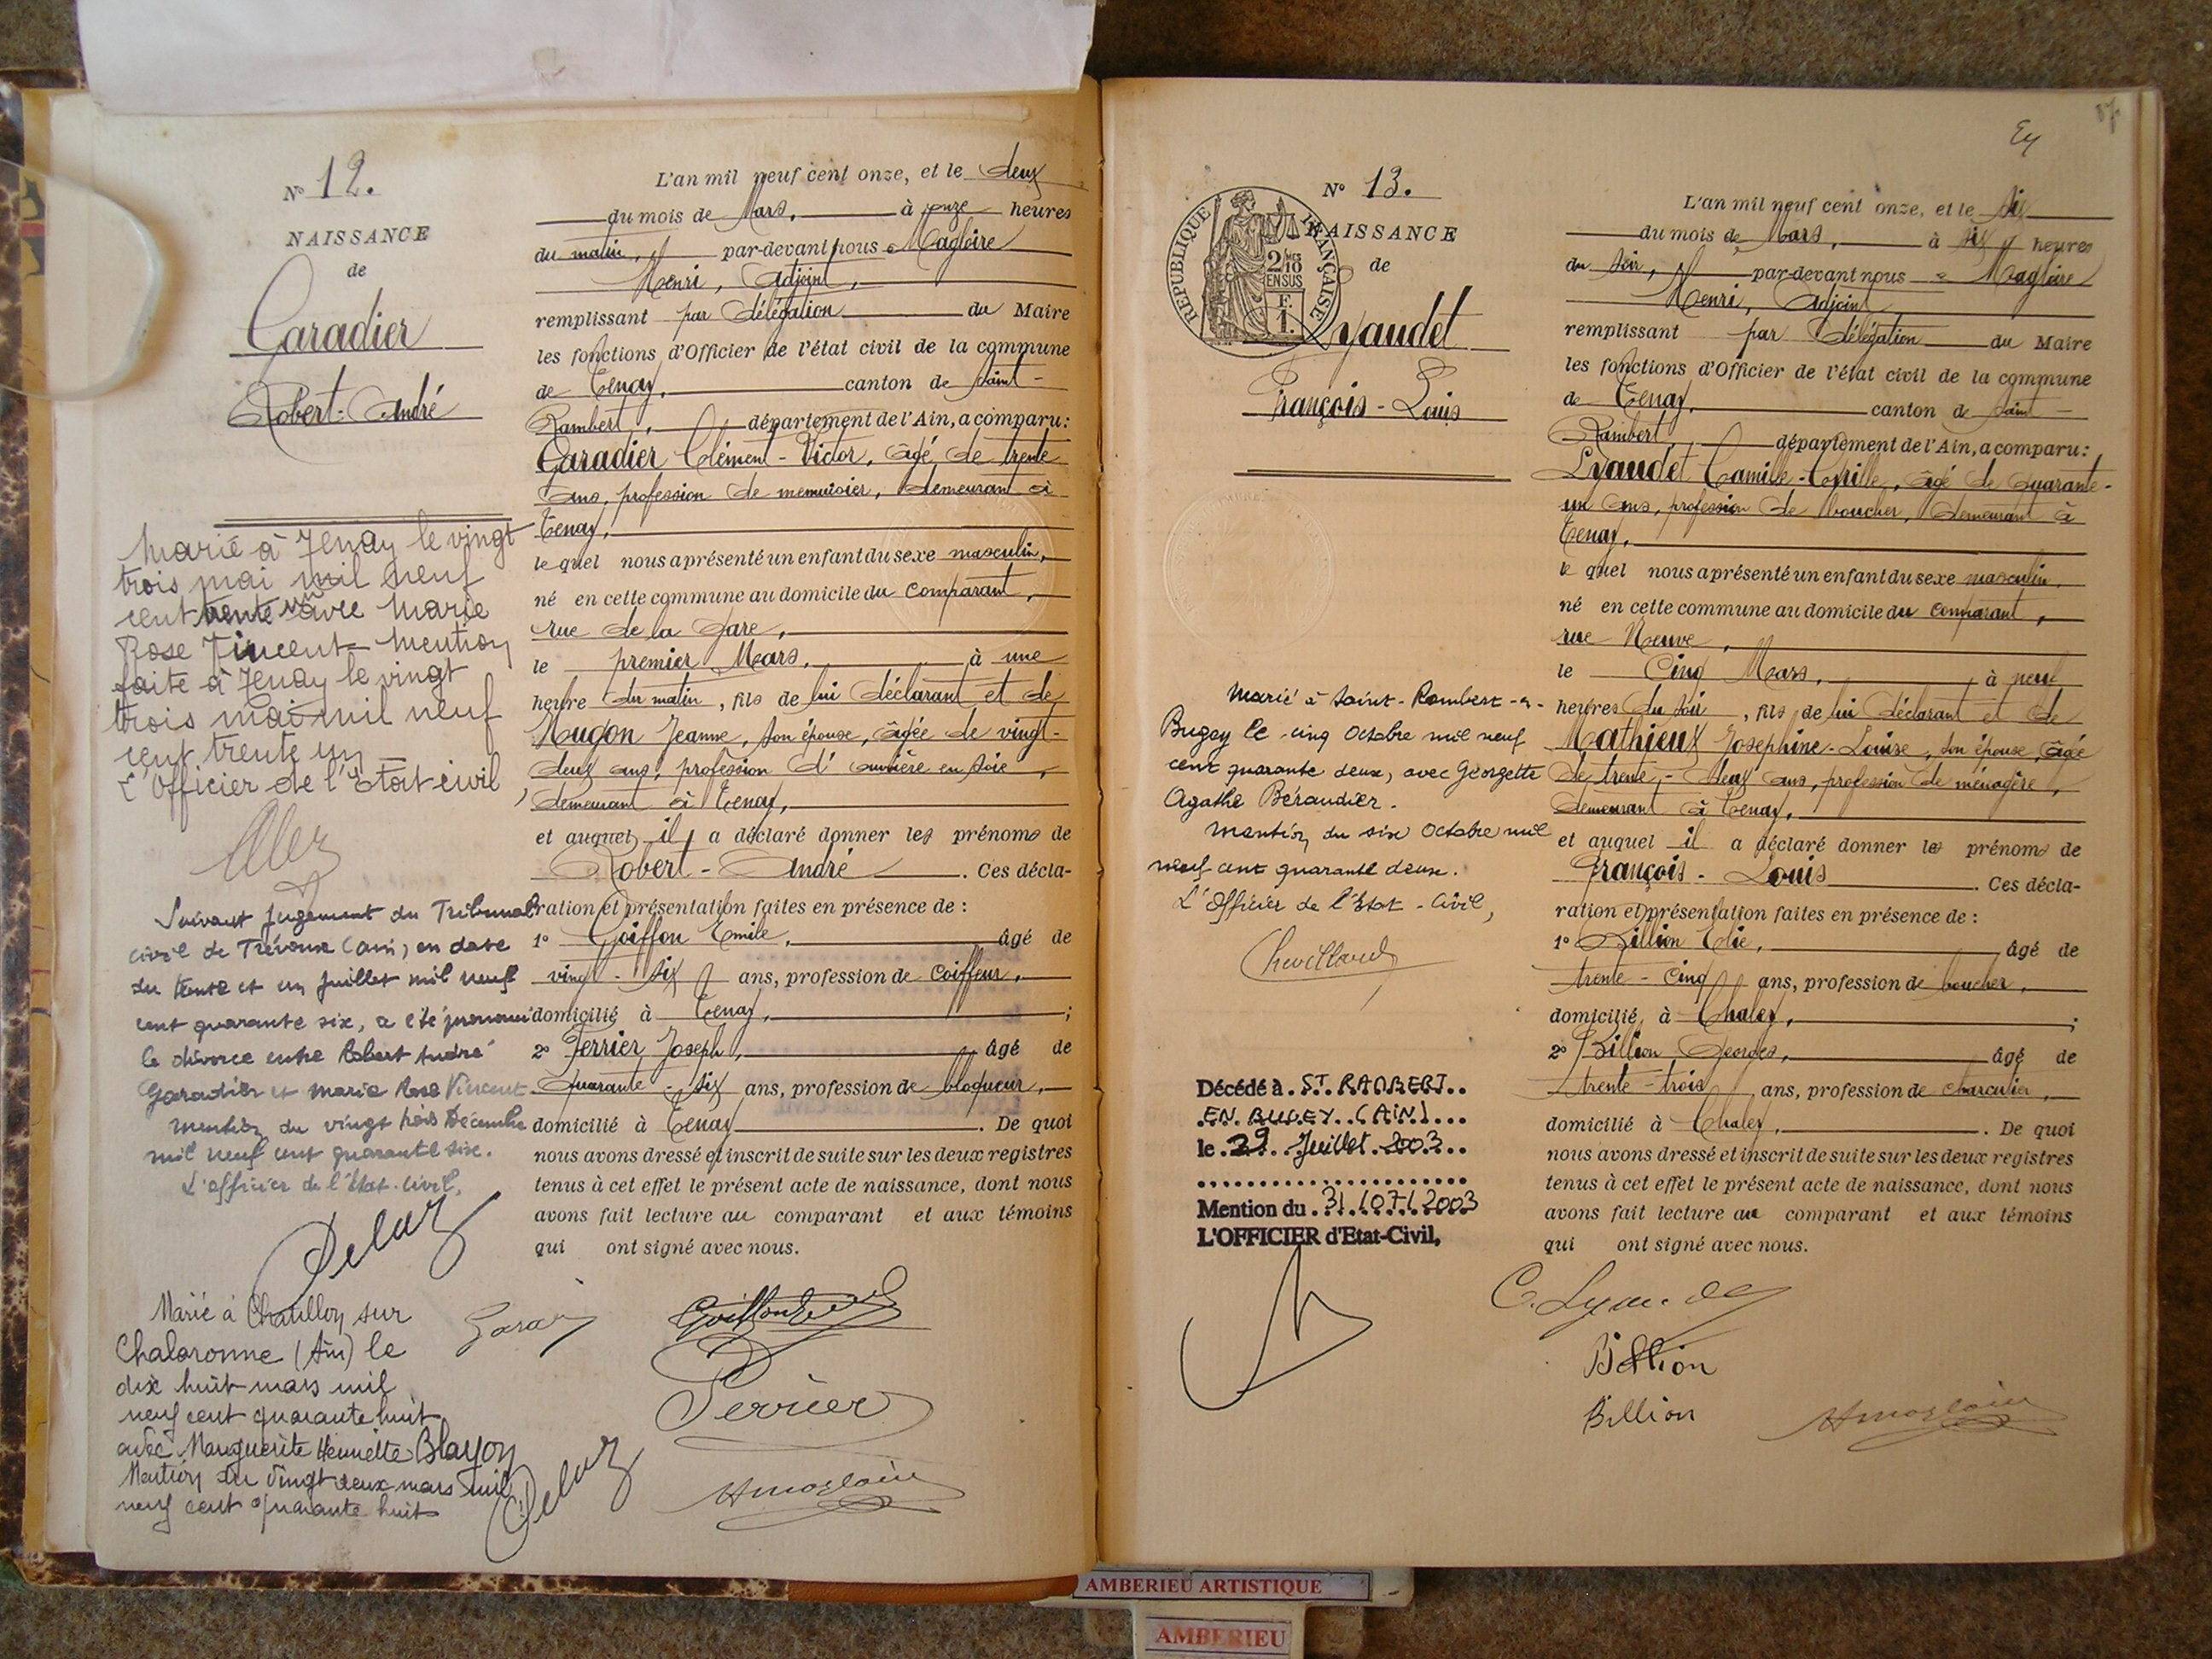 N° 12.
NAISSANCE
de
Garadier
Robert-André
Marié à Tenay le vingt
trois mai mil neuf
cent trente un avec Marie
Rose Vincent - Mention
faite à Tenay le vingt
trois mai mil neuf
cent trente un
L'Officier de l'Etat-civil,
Suivant jugement du Tribunal
civil de Trévoux (Ain) en date
du trente et un juillet mil neuf
cent quarante six, a été prononcé
le divorce entre Robert André
Garadier et Marie Rose Vincent
Mention du vingt trois Décembre
mil neuf cent quarante six.
L'officier de l'Etat-civil,
Marié à Chatillon sur
Chalaronne (Ain) le
dix huit mars mil
neuf cent quarante huit
avec Marguerite Henriette Blayon
Mention du vingt deux mars mil
neuf cent quarante huit
L'an mil neuf cent onze, et le deux
du mois de Mars, à onze heures
du matin, par-devant nous Magloire
Henri, Adjoint,
remplissant par délégation du Maire
les fonctions d'Officier de l'état civil de la commune
de Tenay, canton de Saint-
Rambert, département de l'Ain, a comparu:
Garadier Clément-Victor, âgé de trente
ans, profession de menuisier, demeurant à
Tenay,
le quel nous a présenté un enfant du sexe masculin,
né en cette commune au domicile du comparant,
rue de la Gare,
le premier Mars, à une
heure du matin, fils de lui déclarant et de
Hugon Jeanne, son épouse, âgée de vingt-
deux ans, profession d'ouvrière en soie,
demeurant à Tenay,
et auquel il a déclaré donner les prénoms de
Robert-André. Ces décla-
ration et présentation faites en présence de :
1° Goiffon Emile, âgé de
vingt-six ans, profession de coiffeur,
domicilié à Tenay, ;
2° Perrier Joseph, âgé de
quarante-six ans, profession de bloqueur,
domicilié à Tenay. De quoi
nous avons dressé et inscrit de suite sur les deux registres
tenus à cet effet le présent acte de naissance, dont nous
avons fait lecture au comparant et aux témoins
qui ont signé avec nous.
Perrier
N° 13.
REPUBLIQUE FRANÇAISE
2/10
EN SUS
F.
1.
NAISSANCE
de
Lyaudet
François-Louis
Marié à Saint-Rambert-en-
Bugey le cinq Octobre mil neuf
cent quarante deux, avec Georgette
Agathe Béraudier.
Mention du six Octobre mil
neuf cent quarante deux.
L'Officier de l'Etat-Civil,
Décédé à ST. RAMBERT
EN BUGEY (AIN)
le 29 Juillet 2003
Mention du 31/07/2003
L'OFFICIER d'Etat-Civil,
87
L'an mil neuf cent onze, et le six
du mois de Mars, à six heures
du soir, par-devant nous Magloire
Henri, Adjoint
remplissant par délégation du Maire
les fonctions d'Officier de l'état civil de la commune
de Tenay, canton de Saint-
Rambert, département de l'Ain, a comparu:
Lyaudet Camille, âgé de quarante-
un ans, profession de boucher, demeurant à
Tenay,
le quel nous a présenté un enfant du sexe masculin,
né en cette commune au domicile du comparant,
rue Neuve,
le cinq Mars, à neuf
heures du soir, fils de lui déclarant et de
Mathieux Josephine-Louise, son épouse, âgée
de trente-deux ans, profession de ménagère,
demeurant à Tenay,
et auquel il a déclaré donner les prénoms de
François-Louis. Ces décla-
ration et présentation faites en présence de :
1° Billion Elie, âgé de
trente-cinq ans, profession de boucher,
domicilié à Chaley, ;
2° Billion Georges, âgé de
trente-trois ans, profession de charcutier,
domicilié à Chaley. De quoi
nous avons dressé et inscrit de suite sur les deux registres
tenus à cet effet le présent acte de naissance, dont nous
avons fait lecture au comparant et aux témoins
qui ont signé avec nous.
C. Lyaudet
Billion
Billion
AMBERIEU ARTISTIQUE
AMBERIEU